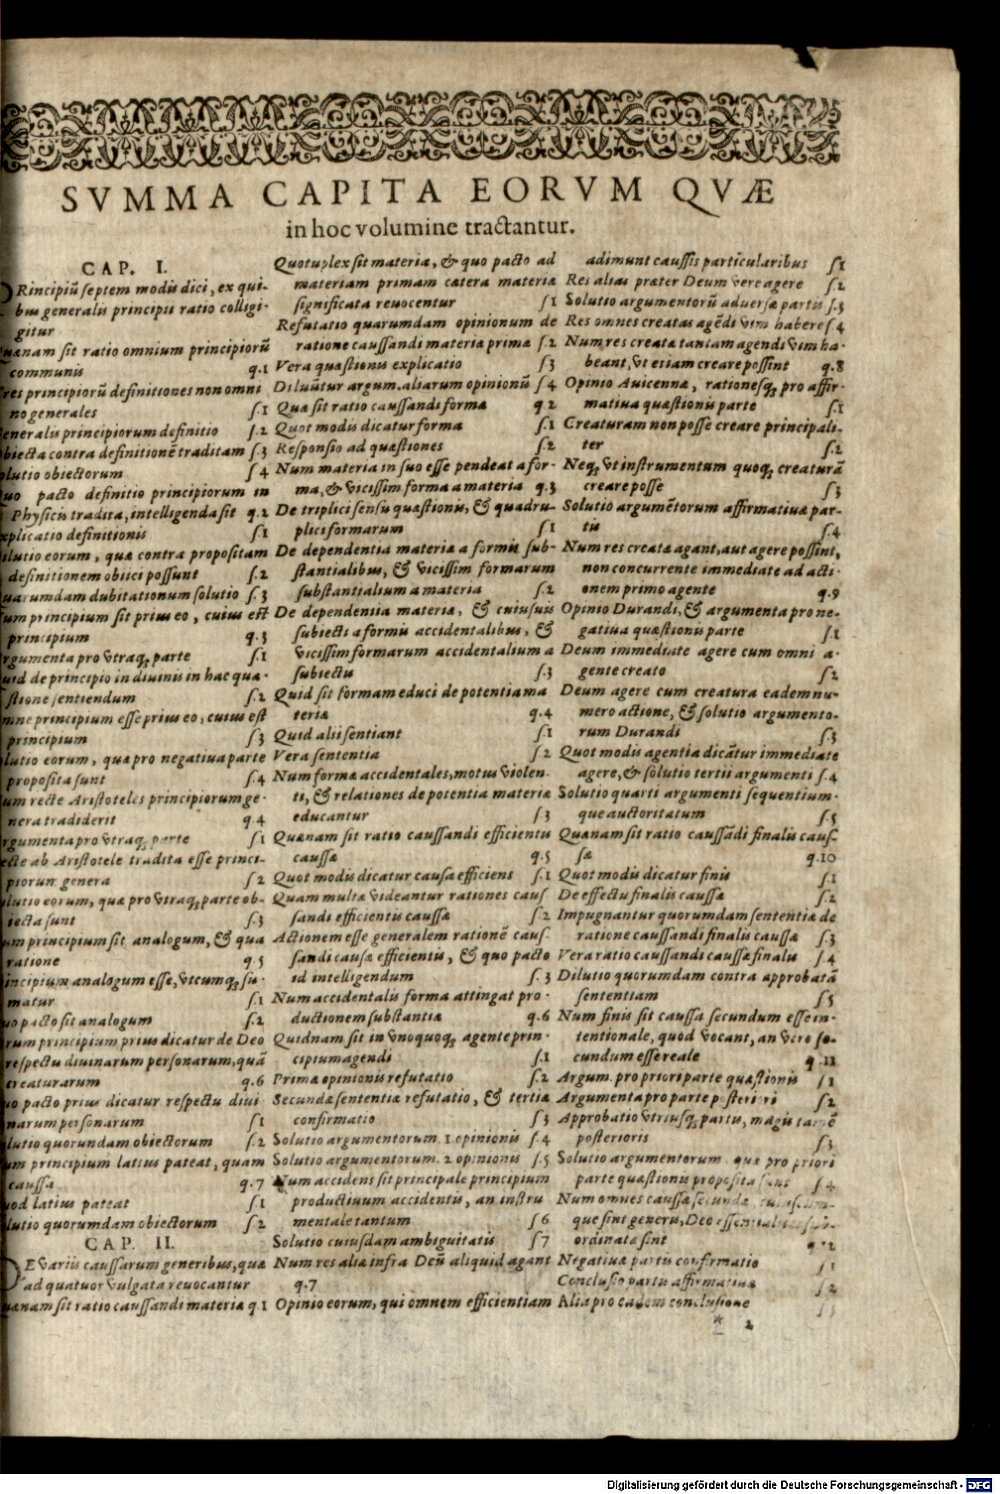 SVMMA CAPITA EORVM QVÆ
in hoc volumine tractantur.
CAP. I.
Rincipiũ septem modis dici, ex qui-
bus generalis principii ratio colligi-
gitur
sit ratio omnium principiorũ
communis q.1
principiorũ definitiones non omni
no generales s.1
principiorum definitio s.2
contra definitionẽ traditam s.3
obiectorum s.4
pacto definitio principiorum in
Physicis tradita, intelligenda sit q.2
definitionis s.1
eorum, quæ contra propositam
definitionem obiici possunt s.2
dubitationum solutio s.3
principium sit prius eo, cuius est
principium q.3
pro vtraq; parte s.1
de principio in diuinis in hac quæ-
stione sentiendum s.2
principium esse prius eo, cuius est
principium s.3
eorum, quæ pro negatiua parte
proposita sunt s.4
recte Aristoteles principiorum ge-
nera tradiderit q.4
pro vtraq; parte s.1
ab Aristotele tradita esse princi-
piorum genera s.2
eorum, quæ pro vtraq; parte ob-
iecta sunt s.3
principium sit analogum, & qua
ratione q.5
analogum esse, vtcumq; su-
matur s.1
pacto sit analogum s.2
principium prius dicatur de Deo
respectu diuinarum personarum, quã
creaturarum q.6
pacto prius dicatur respectu diui-
narum personarum s.1
quorundam obiectorum s.2
principium latius pateat, quam
caussa q.7
latius pateat s.1
quorumdam obiectorum s.2
CAP. II.
DE variis caussarum generibus, quæ
ad quatuor vulgata reuocantur
sit ratio caussandi materiæ q.1
Quotuplex sit materia, & quo pacto ad
materiam primam cætera materiæ
significata reuocentur s.1
Refutatio quarumdam opinionum de
ratione caussandi materiæ primæ s.2
Vera quæstionis explicatio s.3
Diluũtur argum. aliarum opinionũ s.4
Quæ sit ratio caussandi formæ q.2
Quot modis dicatur forma s.1
Responsio ad quæstiones s.2
Num materia in suo esse pendeat a for-
ma, & vicissim forma a materia q.3
De triplici sensu quæstionis, & quadru-
plici formarum s.1
De dependentia materiæ a formis sub-
stantialibus, & vicissim formarum
substantialium a materia s.2
De dependentia materiæ, & cuiusuis
subiecti a formis accidentalibus, &
vicissim formarum accidentalium a
subiectis s.3
Quid sit formam educi de potentia ma
teriæ q.4
Quid alii sentiant s.1
Vera sententia s.2
Num formæ accidentales, motus violen-
ti, & relationes de potentia materiæ
educantur s.3
Quænam sit ratio caussandi efficientis
caussæ q.5
Quot modis dicatur causa efficiens s.1
Quam multæ videantur rationes caus
sandi efficientis caussæ s.2
Actionem esse generalem rationẽ caus-
sandi causæ efficientis, & quo pacto
id intelligendum s.3
Num accidentalis forma attingat pro-
ductionem substantiæ q.6
Quidnam sit in vnoquoq; agente prin-
cipium agendi s.1
Primæ opinionis refutatio s.2
Secundæ sententiæ refutatio, & tertiæ
confirmatio s.3
Solutio argumentorum. 1. opinionis s.4
Solutio argumentorum. 2 opinionis s.5
Num accidens sit principale principium
productiuum accidentis, an instru
mentale tantum s.6
Solutio cuiusdam ambiguitatis s.7
Num res aliæ infra Deũ aliquid agant
q.7
Opinio eorum, qui omnem efficientiam
adimunt caussis particularibus s.1
Res alias præter Deum vere agere s.2
Solutio argumentorũ aduersæ partis s.3
Res omnes creatas agẽdi vim habere s.4
Num res creatæ tantam agendi vim ha-
beant, vt etiam creare possint q.8
Opinio Auicennæ, rationesq; pro affir-
matiua quæstionis parte s.1
Creaturam non posse creare principali-
ter s.2
Neq; vt instrumentum quoq; creaturã
creare posse s.3
Solutio argumẽtorum affirmatiuæ par-
tis s.4
Num res creatæ agant, aut agere possint,
non concurrente immediate ad acti-
onem primo agente q.9
Opinio Durandi, & argumenta pro ne-
gatiua quæstionis parte s.1
Deum immediate agere cum omni a-
gente creato s.2
Deum agere cum creatura eadem nu-
mero actione, & solutio argumento-
rum Durandi s.3
Quot modis agentia dicãtur immediate
agere, & solutio tertii argumenti s.4
Solutio quarti argumenti sequentium-
que auctoritatum s.5
Quænam sit ratio caussãdi finalis caus-
sæ q.10
Quot modis dicatur finis s.1
De effectu finalis caussæ s.2
Impugnantur quorumdam sententiæ de
ratione caussandi finalis caussæ s.3
Vera ratio caussandi caussæ finalis s.4
Dilutio quorumdam contra approbatã
sententiam s.5
Num finis sit caussa secundum esse in-
tentionale, quod vocant, an vero se-
cundum esse reale q.11
Argum. pro priori parte quæstionis s.1
Argumenta pro parte posteriori s.2
Approbatio vtriusq; partis, magis tamẽ
posterioris s.3
Solutio argumentorum quæ pro priori
parte quæstionis proposita sunt s.4
Num omnes caussæ secundæ
que sint generis, Deo essentialiter
ordinatæ sint
Negatiuæ partis confirmatio s.1
Conclusio partis affirmatiuæ s.2
Alia pro eadem conclusione
* 2
Digitalisierung gefördert durch die Deutsche Forschungsgemeinschaft - DFG